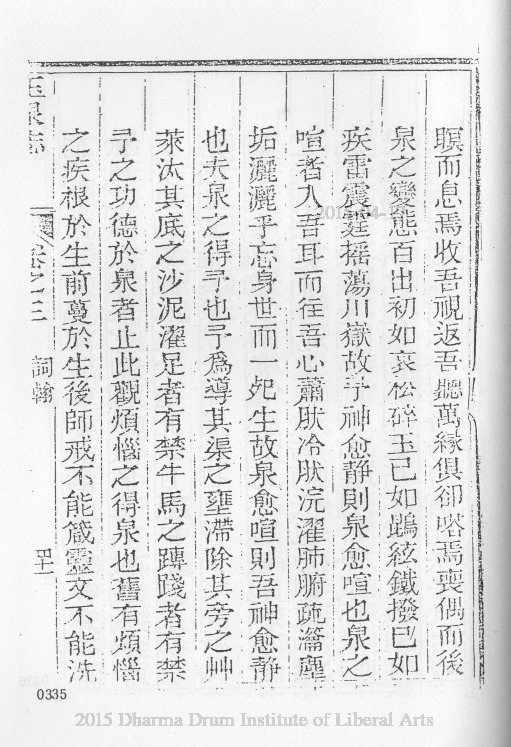 瞑而息焉收吾視返吾聽萬緣俱卻嗒焉喪偶而後
泉之變態百出初如哀松碎玉已如鵾絃鐵撥已如
疾雷震霆搖蕩川嶽故予神愈靜則泉愈喧也泉之
喧者入吾耳而注吾心蕭肰冷肰浣濯肺腑疏瀹塵
垢灑灑乎忘身世而一死生故泉愈喧則吾神愈靜
也夫泉之得予也予爲導其渠之壅滯除其旁之艸
萊汰其底之沙泥濯足者有禁牛馬之蹲踐者有禁
予之功德於泉者止此觀煩惱之得泉也舊有煩惱
之疾根於生前蔓於生後師戒不能箴靈文不能洗
玉泉志
卷之三
詞翰
四十一
0335
2015 Dharma Drum Institute of Liberal Arts